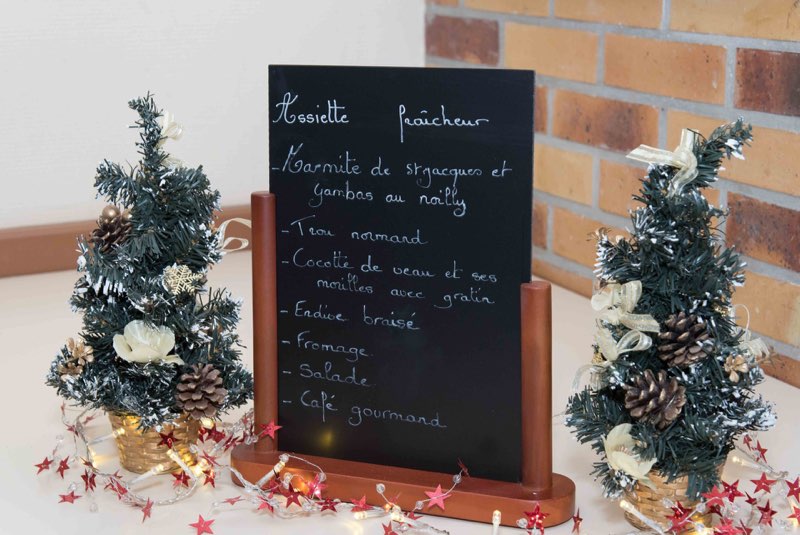 Assiette fraîcheur
- Marmite de st jacques et
gambas au noilly
- Trou normand
- Cocotte de veau et ses
morilles avec gratin
- Endive braisé
- Fromage
- Salade
- Café gourmand